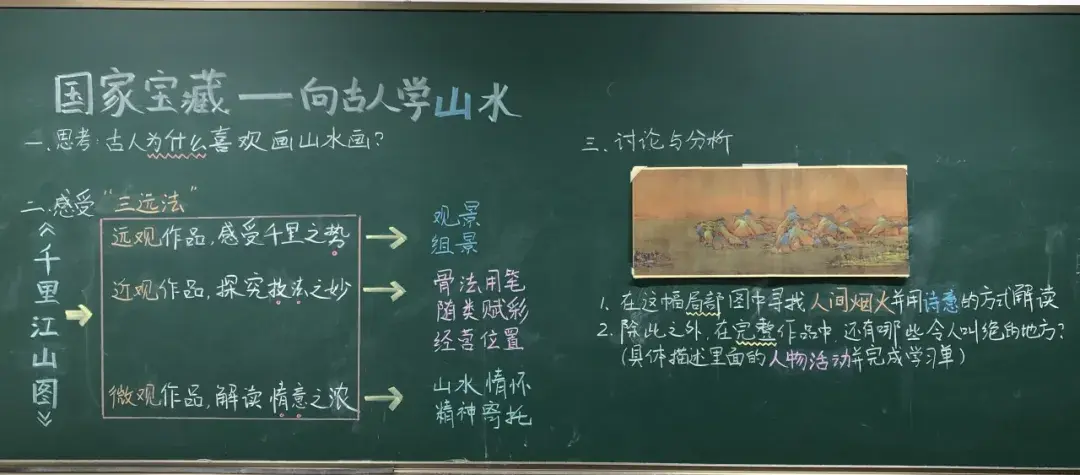 国家宝藏——向古人学山水
一、思考:古人为什么喜欢画山水画?
二、感受“三远法”
《千里江山图》
远观作品,感受千里之势
观景
组景
近观作品,探究技法之妙
骨法用笔
随类赋彩
经营位置
微观作品,解读情意之浓
山水情怀
精神寄托
三、讨论与分析
1. 在这幅局部图中寻找人间烟火并用诗意的方式解读
2. 除此之外,在完整作品中,还有哪些令人叫绝的地方?
(具体描述里面的人物活动并完成学习单)